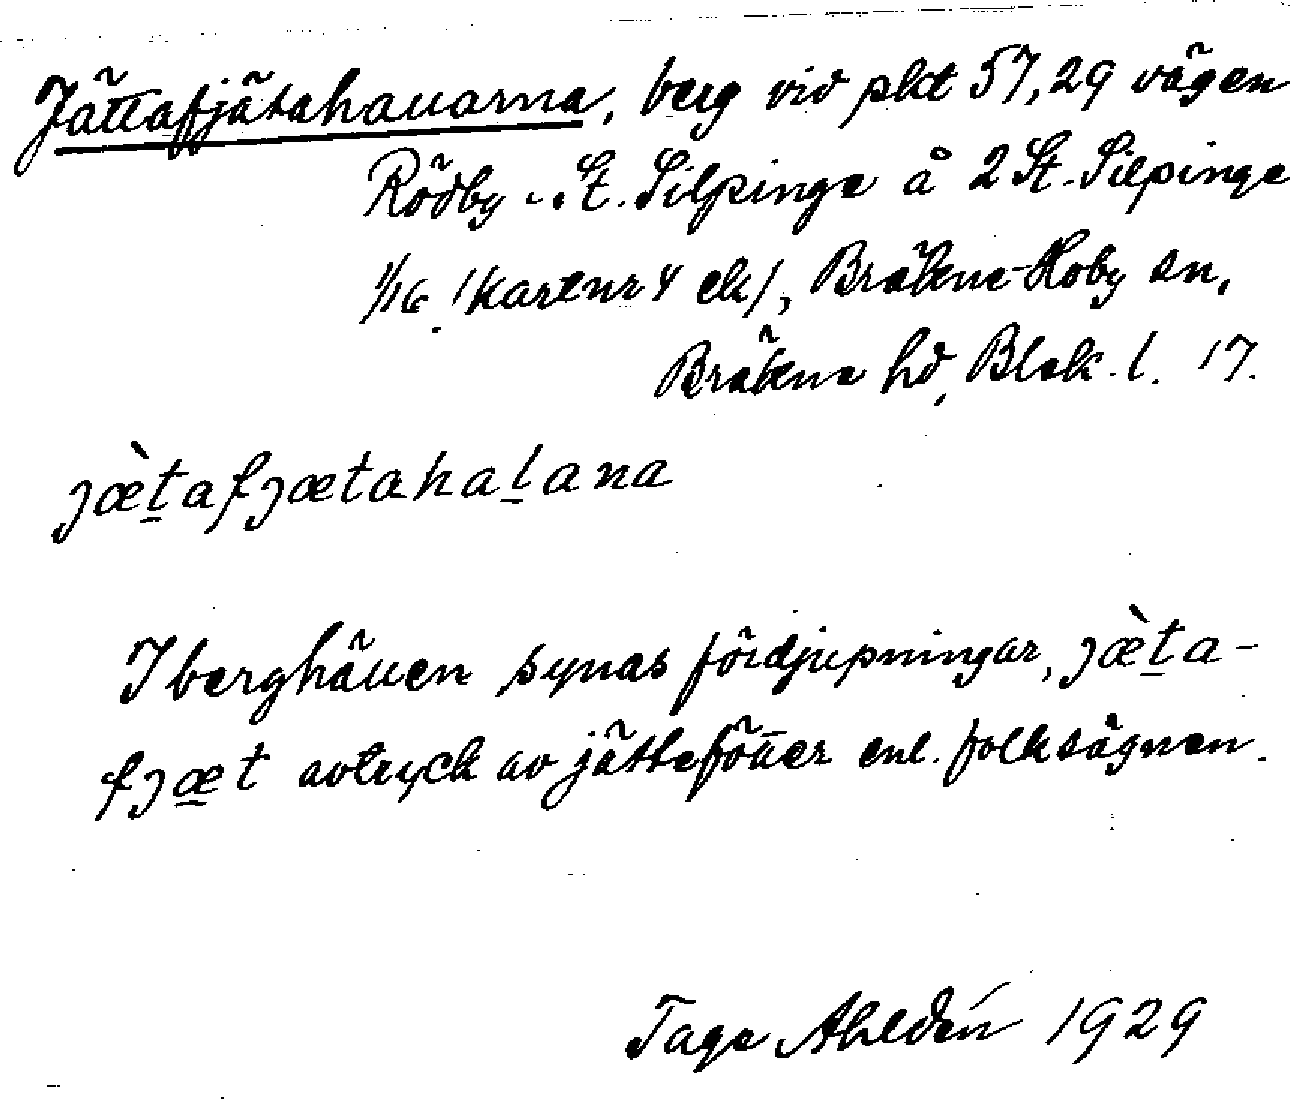 Jättafjätahallarna, berg vid pkt 57,29 vägen
Rödby - St. Silpinge å 2 St. Silpinge
1/16 /kartnr 4 ek/, Bräkne-Hoby sn,
Bräkne hd, Blek. l. 17.
jæ̀ṯafjætahaḻana
I berghällen synas fördjupningar, jæ̀ṯa-
fjæ̱t avtryck av jättefötter enl. folksägnen.
Tage Ahldén 1929